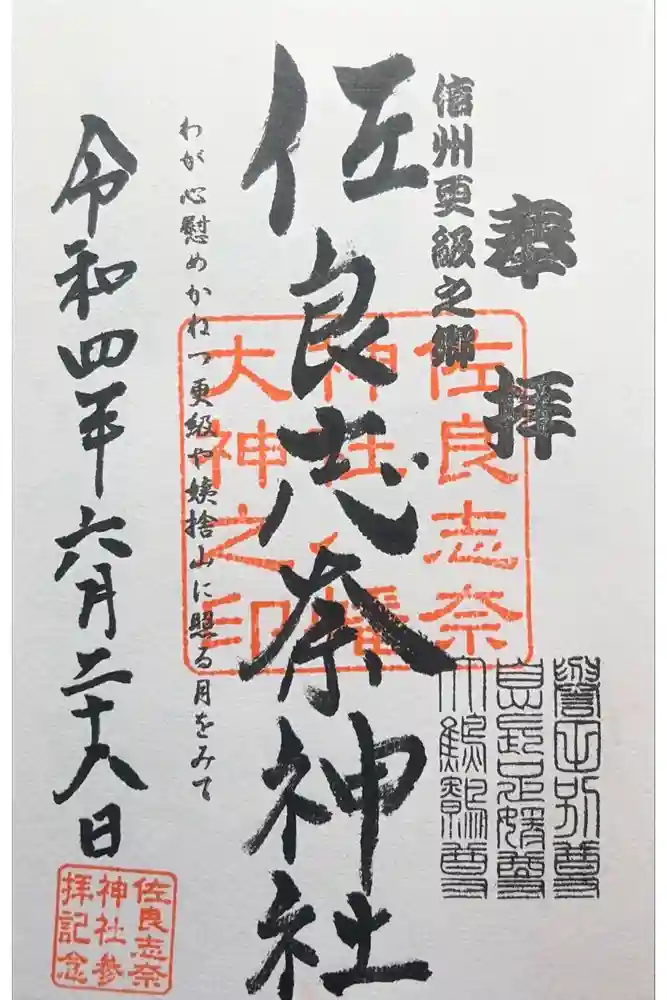 奉拝
信州更級之郷
佐良志奈神社
わが心慰めかねつ更級や姨捨山に照る月をみて
令和四年六月二十八日
佐良志奈
神社八幡
大神之印
譽田別尊
息長足媛尊
大鷦鷯尊
佐良志奈
神社参
拝記念